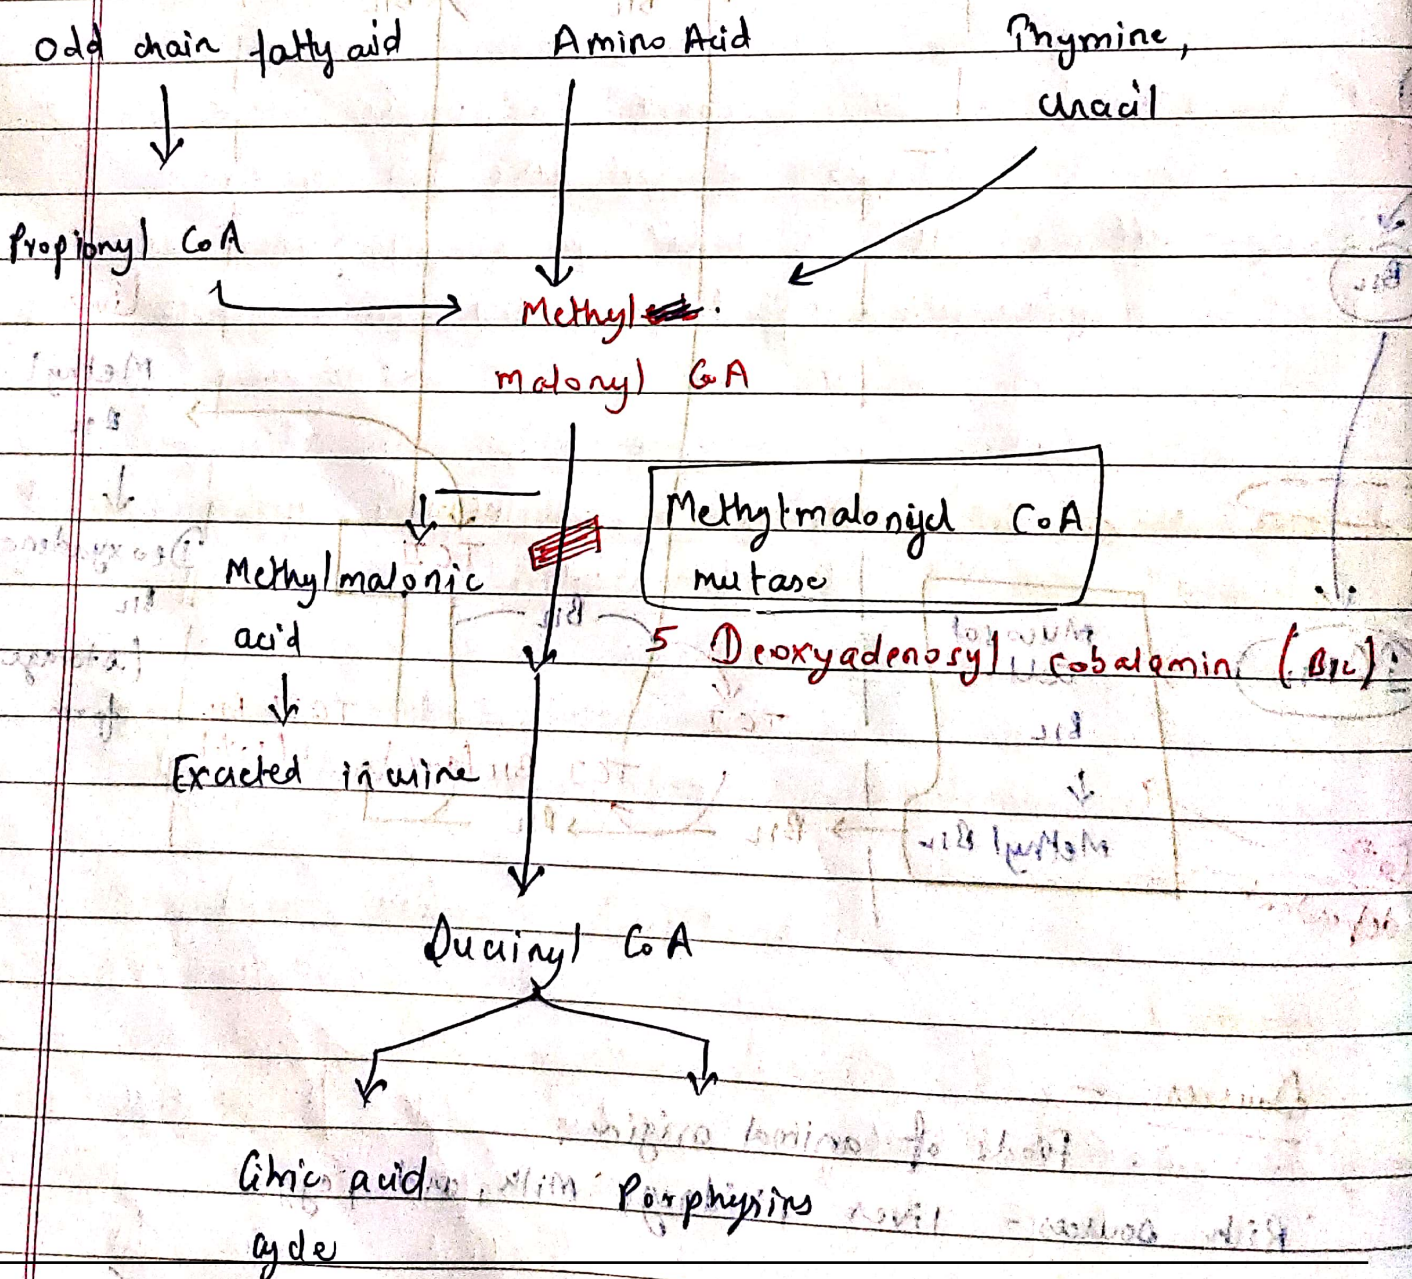 Odd chain fatty acid
Amino Acid
Thymine,
Uracil
Propionyl CoA
Methyl
malonyl CoA
Methylmalonyl CoA
mutase
Methylmalonic
acid
5 Deoxyadenosyl cobalamin (B12).
Exacted in urine
Succinyl CoA
Citric acid
cycle
Porphyrins